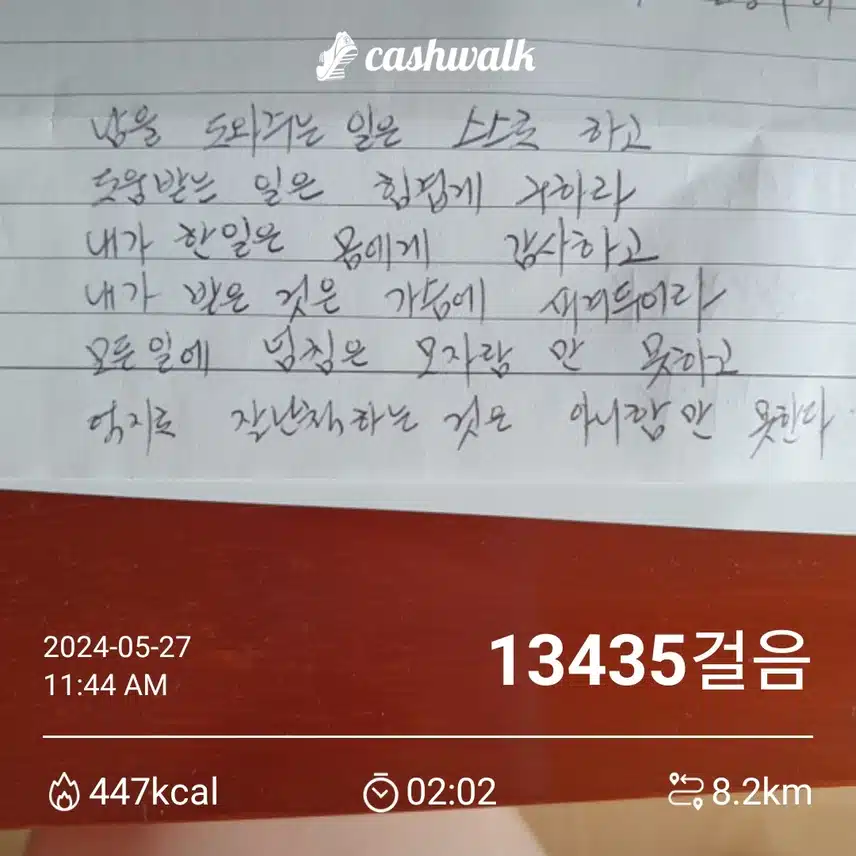 cashwalk
남을 도와주는 일은 스스로 하고
도움받는 일은 힘겹게 구하라
내가 한일은 몸에게 감사하고
내가 받은 것은 가슴에 새겨두어라
모든일에 넘침은 모자람 만 못하고
억지로 잘난척하는 것은 아니함만 못한다
2024-05-27
13435걸음
11:44 AM
447kcal
02:02
8.2km